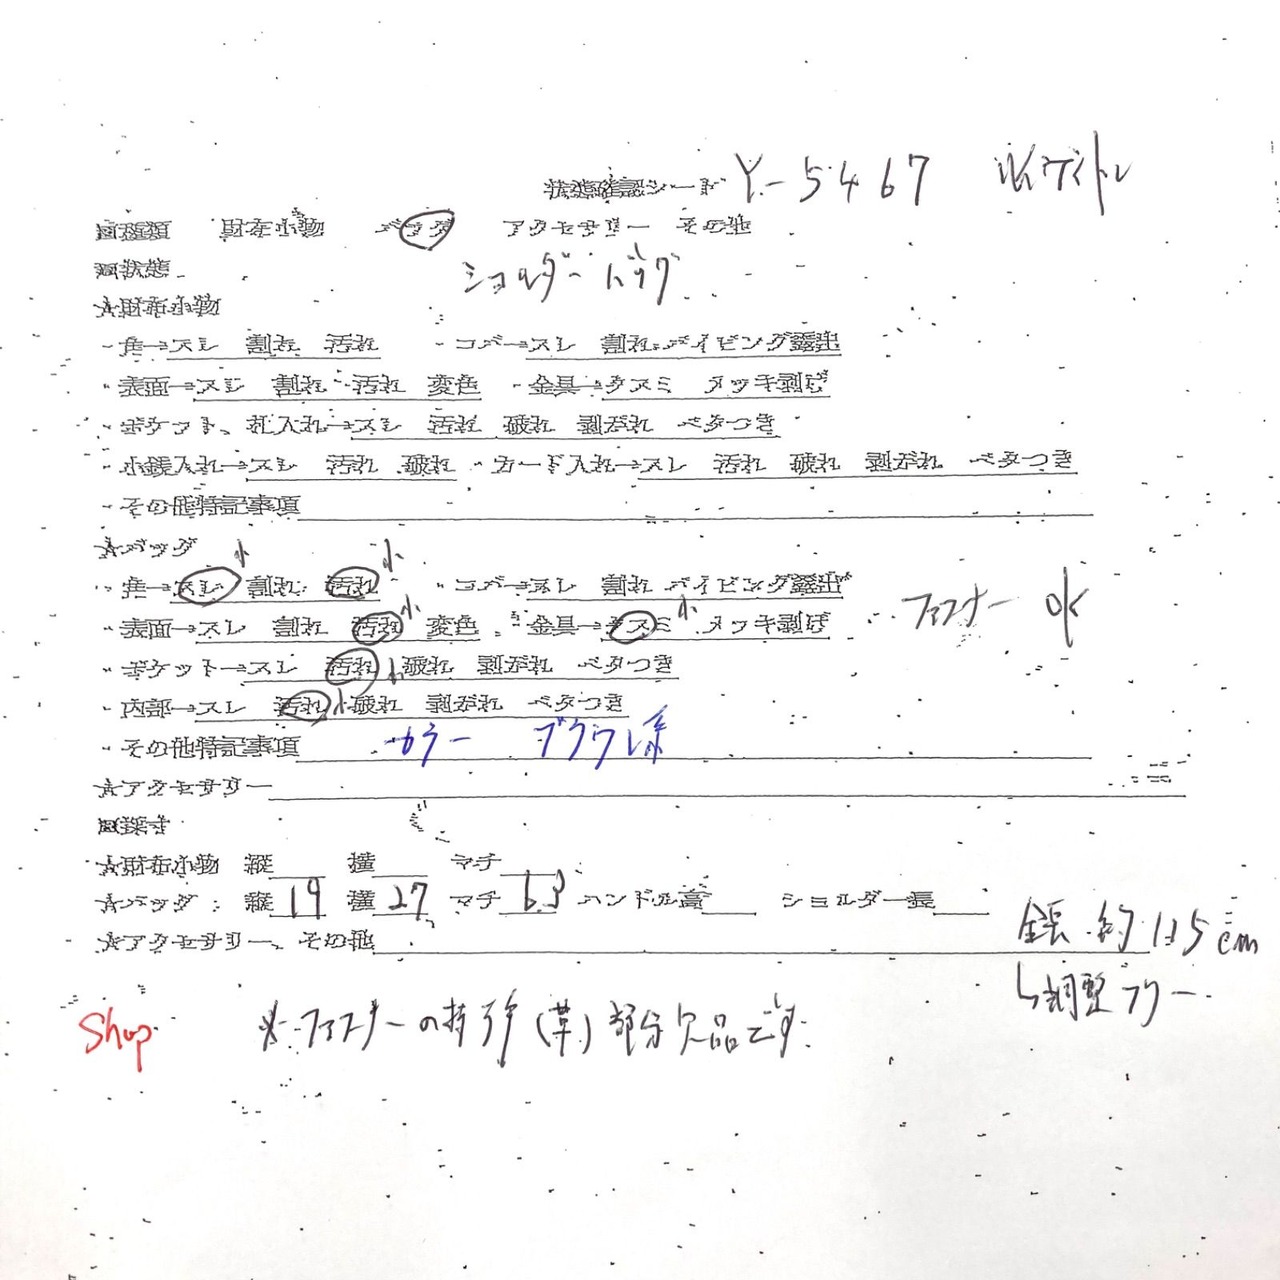 状態確認シート Y-5467
□種類 財布小物 バッグ アクセサリー その他
□状態 ショルダーバッグ
☆財布小物
・角→スレ 割れ 汚れ ・コバ→スレ 割れ パイピング露出
・表面→スレ 割れ 汚れ 変色 ・金具→クスミ メッキ剥げ
・ポケット、札入れ→スレ 汚れ 破れ 剥がれ ベタつき
・小銭入れ→スレ 汚れ 破れ ・カード入れ→スレ 汚れ 破れ 剥がれ ベタつき
・その他特記事項
☆バッグ
・角→スレ 小 割れ 汚れ 小 ・コバ→スレ 割れ パイピング露出
・表面→スレ 割れ 汚れ 小 変色 ・金具→クスミ 小 メッキ剥げ ファスナー OK
・ポケット→スレ 汚れ 小 破れ 剥がれ ベタつき
・内部→スレ 汚れ 小 破れ 剥がれ ベタつき
・その他特記事項 カラー ブラウン系
☆アクセサリー
□採寸
☆財布小物 縦 横 マチ
☆バッグ:縦 19 横 27 マチ 6.3 ハンドル高 ショルダー長
全長 約115cm
☆アクセサリー、その他
↳調整フリー
Shop ※ファスナーの持手(革)部分欠品です。